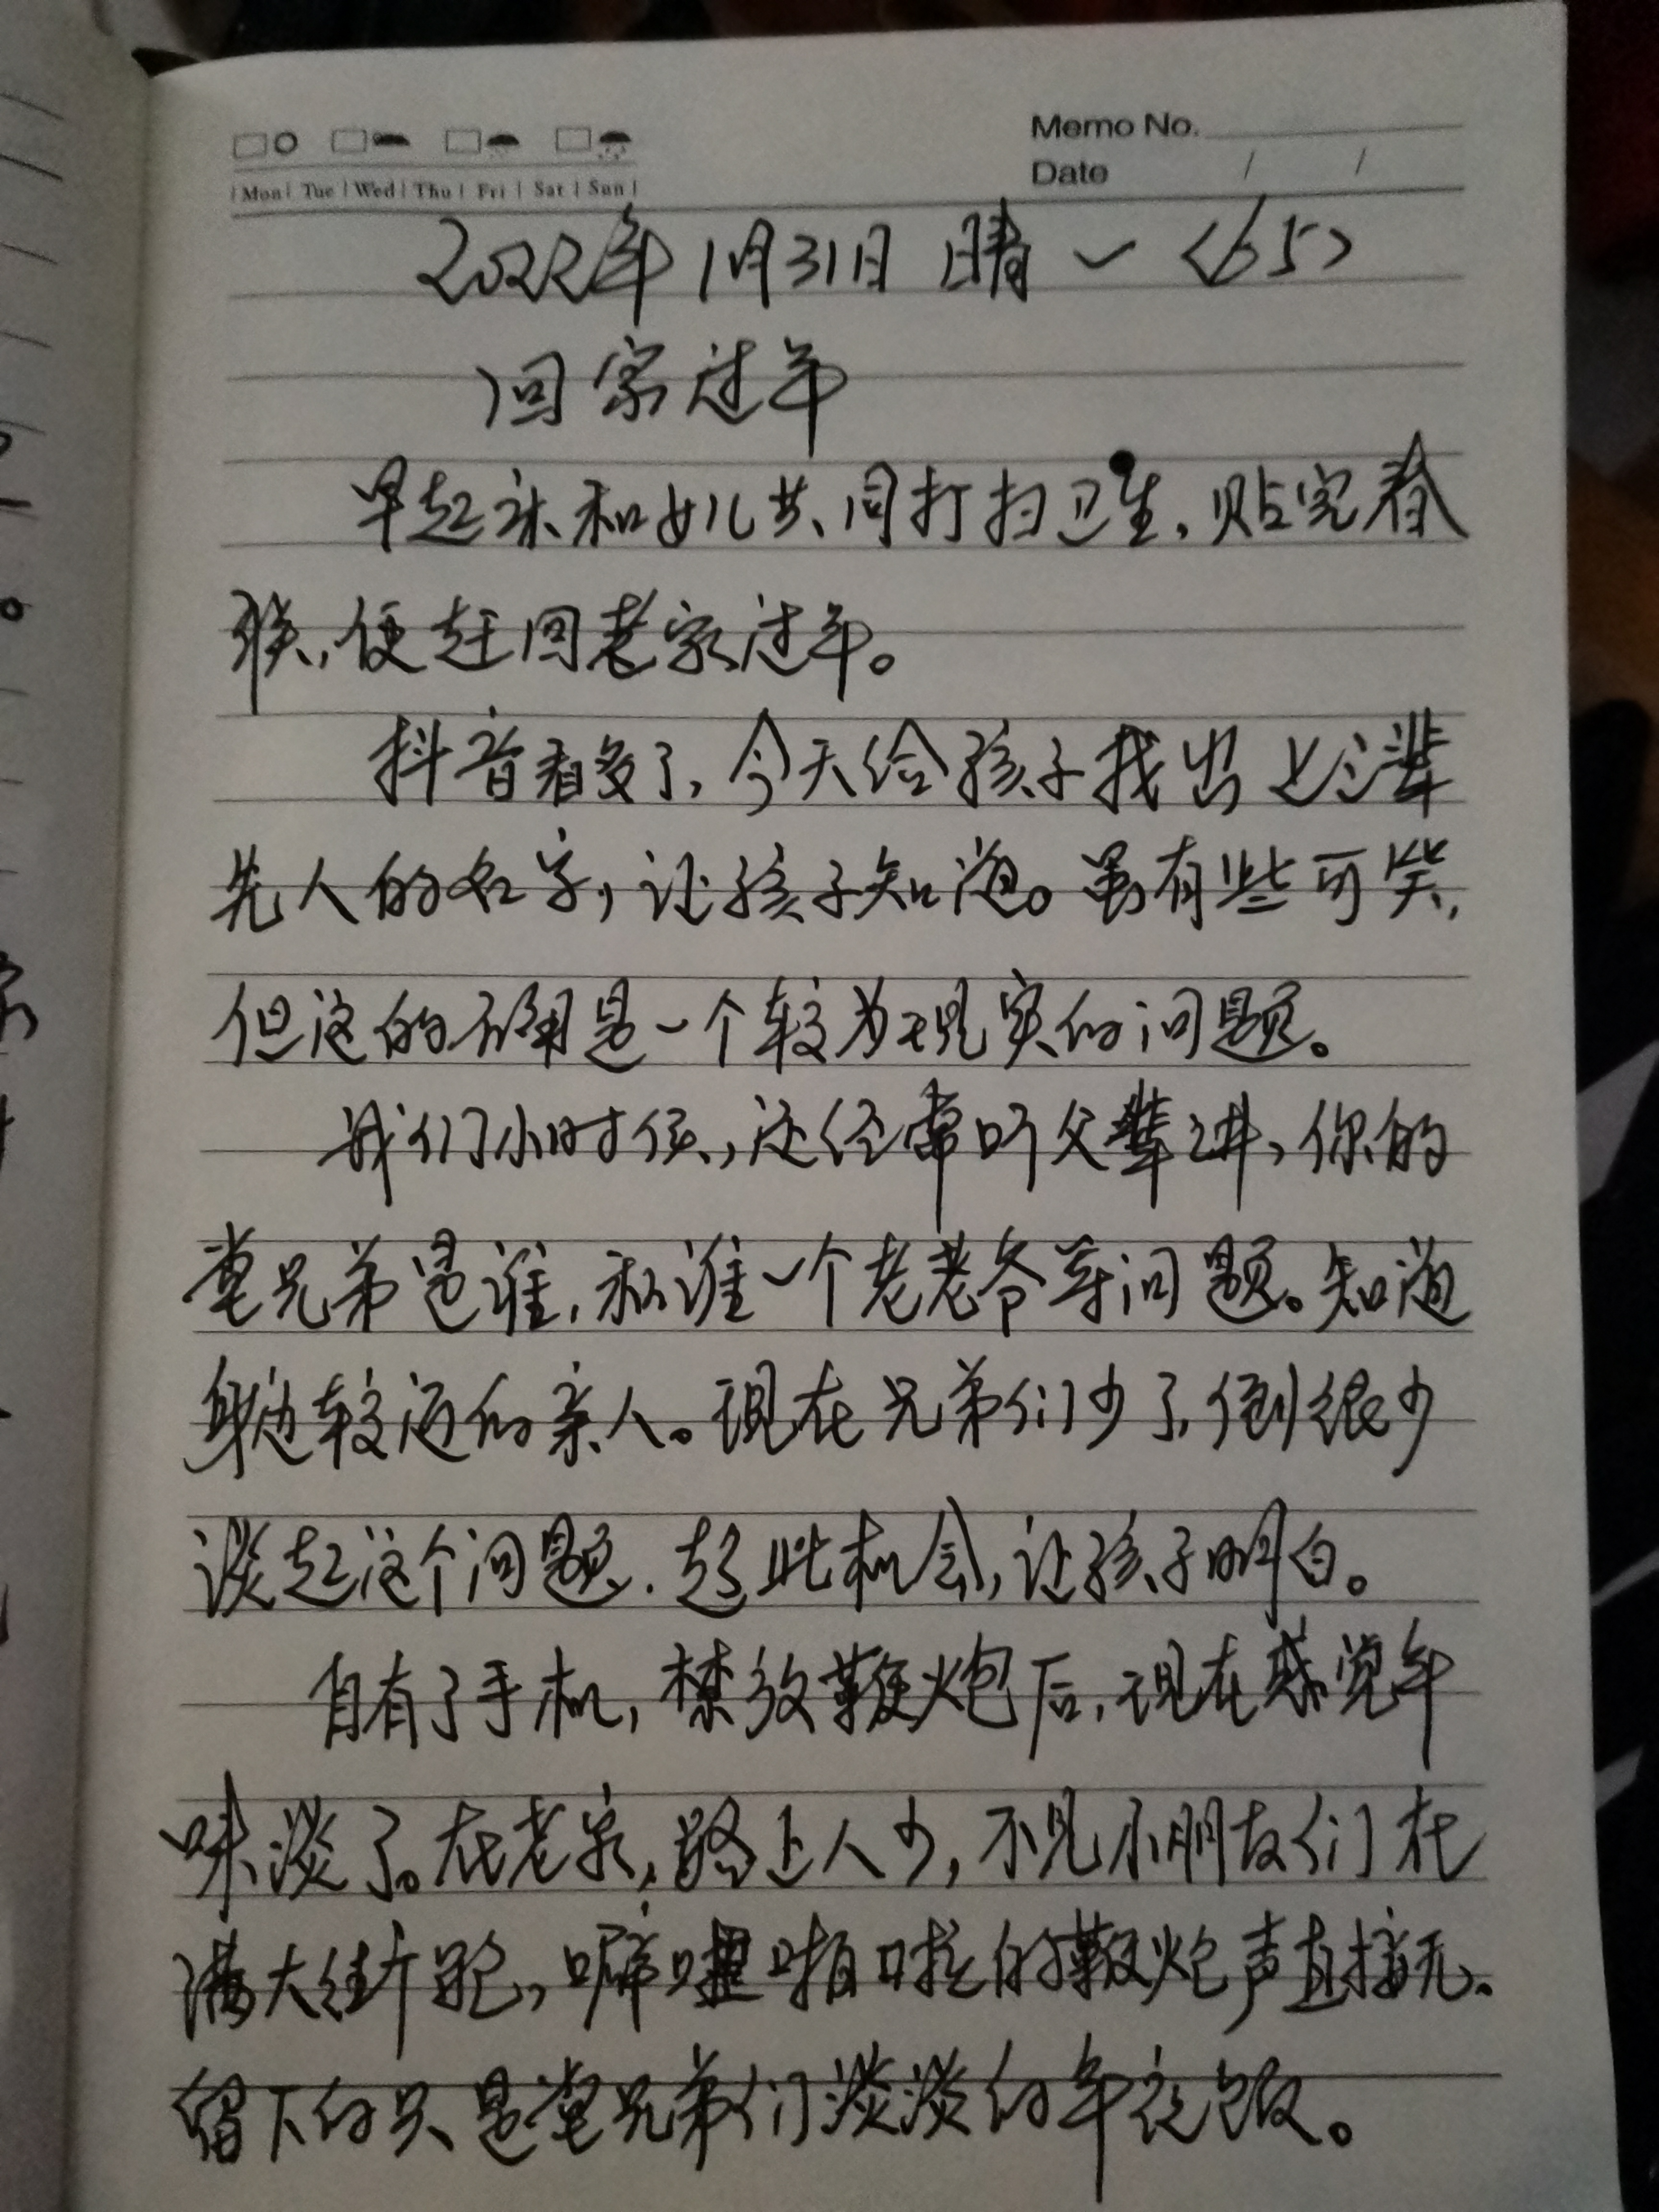 Memo No.
Date / /
Mon Tue Wed Thu Fri Sat Sun
2022年1月31日 晴 一 <65>
回家过年
早起床和女儿共同打扫卫生，贴完春
联，便赶回老家过年。
抖音看多了，今天给孩子找出上辈
先人的名字，让孩子知道。虽有些可笑，
但这的确是一个较为现实的问题。
我们小时候，还经常听父辈讲，你的
堂兄弟是谁，和谁一个老老爷等问题。知道
身边较近的亲人。现在兄弟们少了，倒很少
谈起这个问题．趁此机会，让孩子明白。
自有了手机，禁放鞭炮后，现在感觉年
味淡了。在老家，路上人少，不见小朋友们在
满大街跑，噼哩啪啦的鞭炮声直接无。
留下的只是堂兄弟们淡淡的年夜饭。